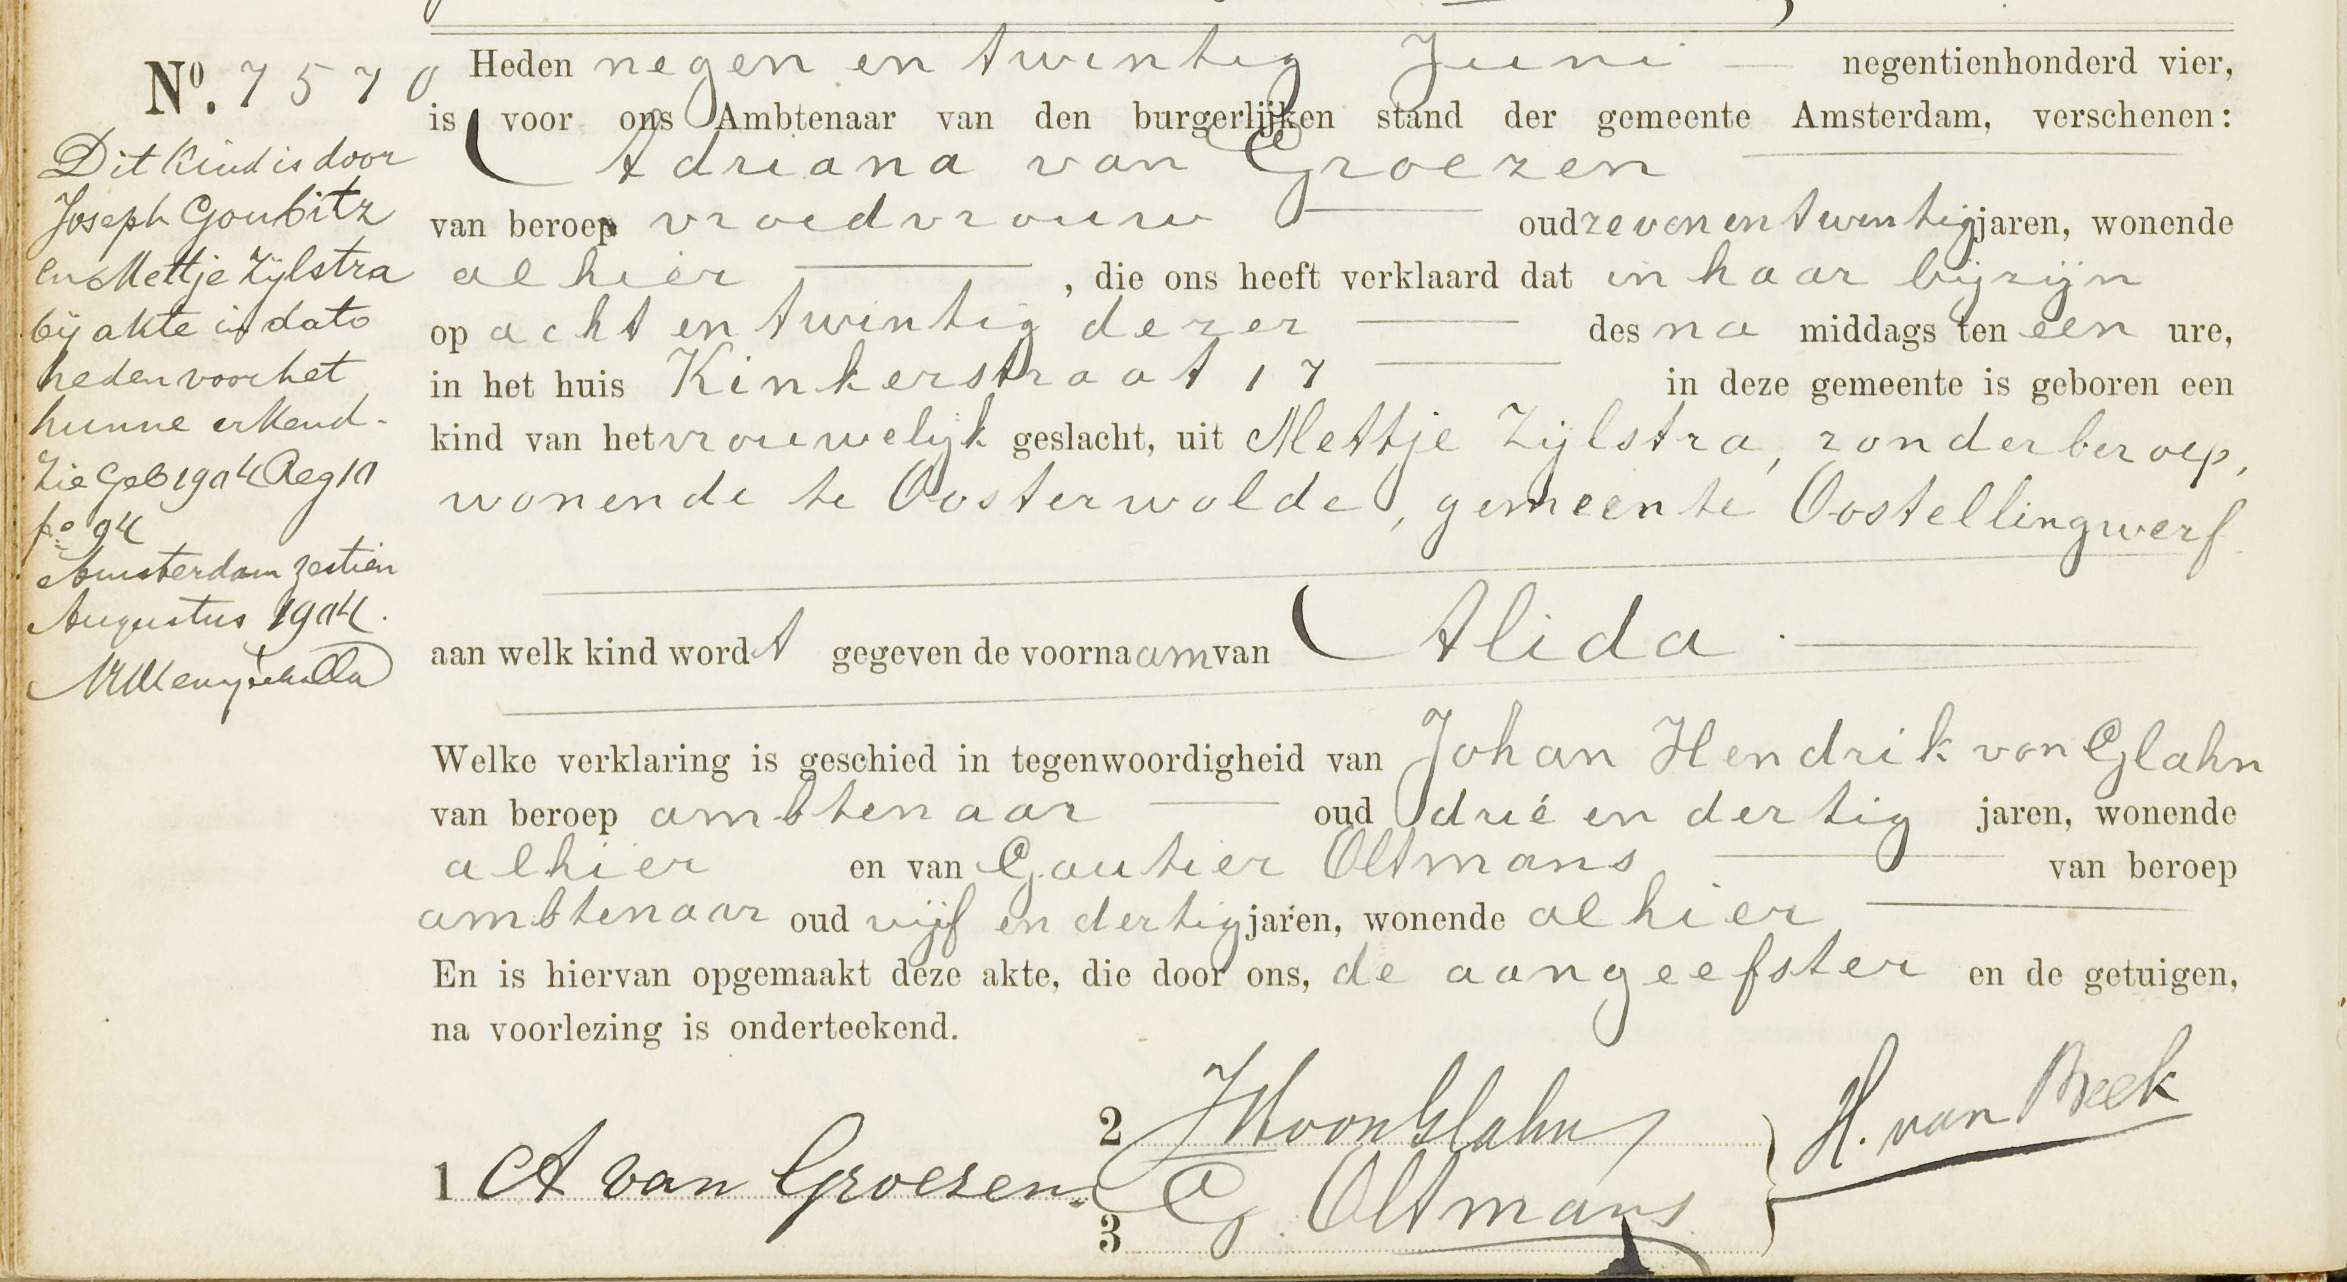 No. 7570
Dit kind is door
Joseph Goubitz
en Mettje Zijlstra
bij akte in dato
heden voor het
hunne erkend -
Zie Geb 1904 Reg 10
fo 94
Amsterdam zestien
Augustus 1904.
Heden negen en twintig Juni — negentienhonderd vier,
is voor ons Ambtenaar van den burgerlijken stand der gemeente Amsterdam, verschenen:
Adriana van Groezen
van beroep vroedvrouw oud zeven en twintig jaren, wonende
alhier , die ons heeft verklaard dat in haar bijzijn
op acht en twintig dezer des na middags ten een ure,
in het huis Kinkerstraat 17 in deze gemeente is geboren een
kind van het vrouwelijk geslacht, uit Mettje Zijlstra, zonder beroep,
wonende te Oosterwolde, gemeente Oostellingwerf
aan welk kind wordt gegeven de voornaam van Alida
Welke verklaring is geschied in tegenwoordigheid van Johan Hendrik von Glahn
van beroep ambtenaar oud drie en dertig jaren, wonende
alhier en van Gautier Oltmans van beroep
ambtenaar oud vijf en dertig jaren, wonende alhier
En is hiervan opgemaakt deze akte, die door ons, de aangeefster en de getuigen,
na voorlezing is onderteekend.
1 A van Groezen.
2 JHvonGlahn
3 G Oltmans
H. van Beek